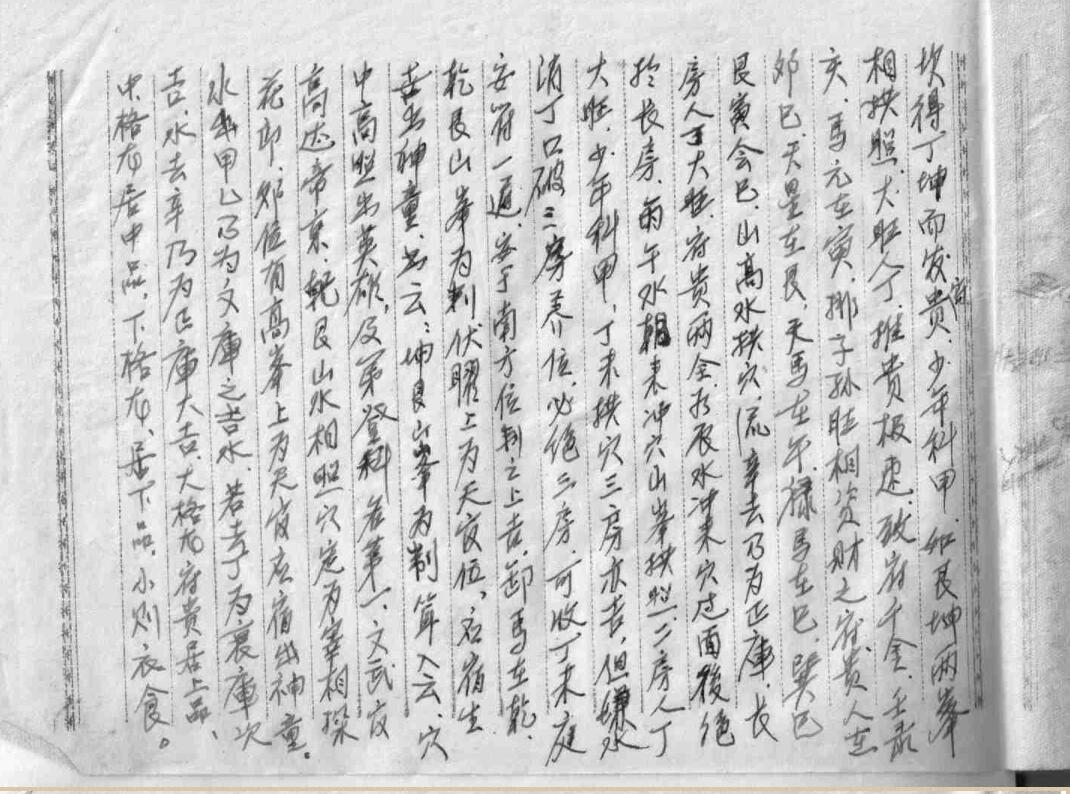 坎得丁坤而发富贵、少年科甲、如艮坤两峯
相拱照、大旺人丁、推贵极速、致府千金、壬禄
亥、马元在寅、挪子孙旺相资财之府、贵人在
卯巳、天星在艮、天马在午、禄马在巳、巽巳
艮寅会巳、山高水拱穴、流辛去乃为正库、长
房人丁大旺、府贵两全、忌辰水冲来穴过面後绝
於长房、丙午水朝来冲穴山峯拱照、二房人丁
大旺、少年科甲、丁未拱穴三房亦吉、但嫌水
消丁口破三房养位、必绝三房、可收丁未庭
安符一道、安于南方位制之上吉、卸马在乾、
乾艮山峯为制伏曜上为天官位、名宿生
吉出神童、书云：坤艮山峯为制耳入云、穴
中高照出英雄、及第登科居第一、文武官
高达帝京、乾艮山水相照穴定为宰相探
花郎、卯位有高峯上为天官左宿出神童。
水出甲乙乃为文庫之吉水、若去丁为衰庫次
吉、水去辛乃为正庫大吉、大格龙府贵居上品、
中格龙居中品、下格龙、居下品、小则衣食。